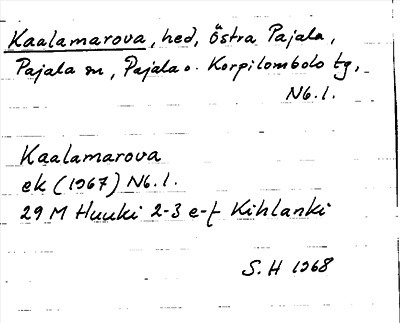 Kaalamarova, hed, Östra Pajala,
Pajala sn, Pajala o. Korpilombolo tg,
Nb.l.
Kaalamarova
ek (1967) Nb.l.
29 M Huuki 2-3 e-f Kihlanki
S.H 1968